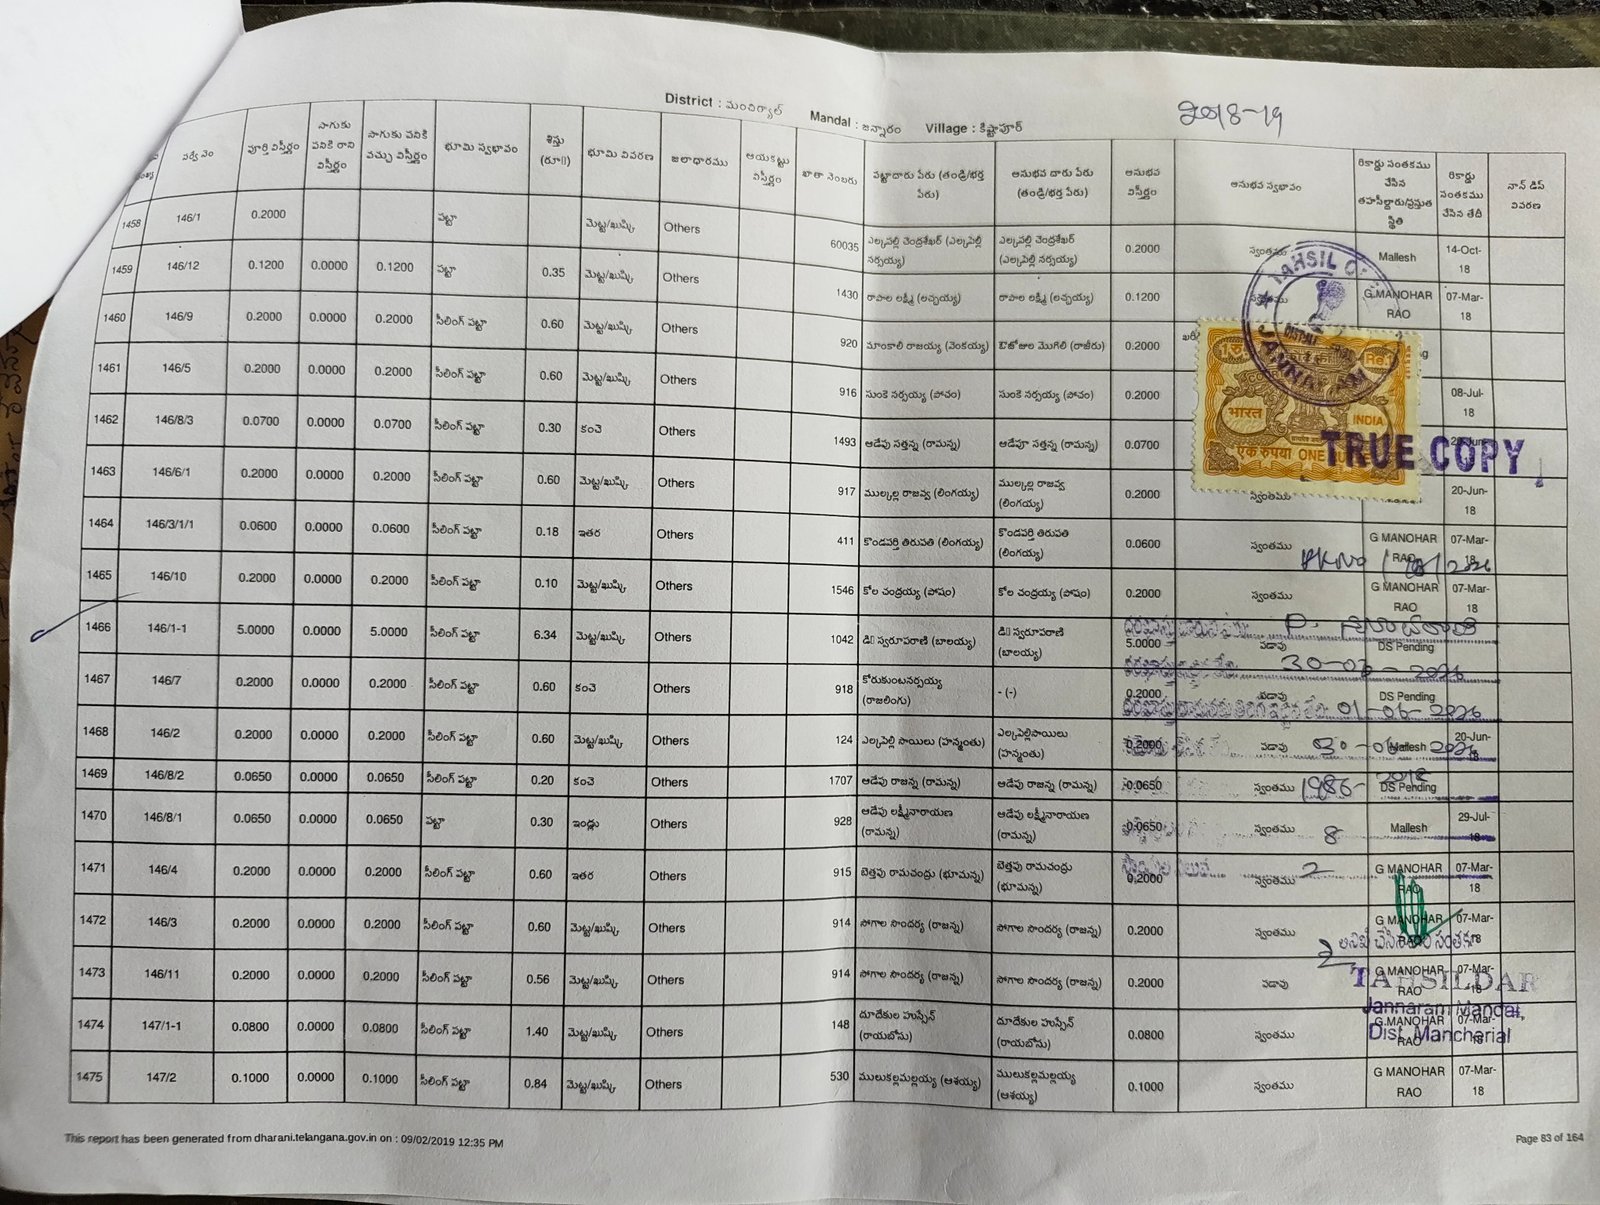 District : మంచిర్యాల్ Mandal : జన్నారం Village : కిష్టాపూర్ 2018-19
సర్వే నెం పూర్తి విస్తీర్ణం సాగుకు పనికి రాని విస్తీర్ణం సాగుకు పనికి వచ్చు విస్తీర్ణం భూమి స్వభావం శిస్తు (రూ) భూమి వివరణ జలాధారము ఆయకట్టు విస్తీర్ణం ఖాతా నెంబరు పట్టాదారు పేరు (తండ్రి/భర్త పేరు) అనుభవ దారు పేరు (తండ్రి/భర్త పేరు) అనుభవ విస్తీర్ణం అనుభవ స్వభావం రికార్డు సంతకము చేసిన తహసీల్దారు/ప్రస్తుత స్థితి రికార్డు సంతకము చేసిన తేదీ నాన్ డిస్ వివరణ
1458 146/1 0.2000 పట్టా మెట్ట/ఖుష్కి Others 60035 ఎల్కపల్లి చెంద్రశేఖర్ (ఎల్కపెల్లి నర్సయ్య) ఎల్కపల్లి చెంద్రశేఖర్ (ఎల్కపెల్లి నర్సయ్య) 0.2000 స్వంతము Mallesh 14-Oct-18
1459 146/12 0.1200 0.0000 0.1200 పట్టా 0.35 మెట్ట/ఖుష్కి Others 1430 రాపాల లక్ష్మీ (లచ్చయ్య) రాపాల లక్ష్మీ (లచ్చయ్య) 0.1200 G MANOHAR RAO 07-Mar-18
1460 146/9 0.2000 0.0000 0.2000 సీలింగ్ పట్టా 0.60 మెట్ట/ఖుష్కి Others 920 మాంకాలి రాజయ్య (వెంకయ్య) ఔజోజుల మొగిలి (రాజీరు) 0.2000
1461 146/5 0.2000 0.0000 0.2000 సీలింగ్ పట్టా 0.60 మెట్ట/ఖుష్కి Others 916 సుంకె నర్సయ్య (పోచం) సుంకె నర్సయ్య (పోచం) 0.2000 08-Jul-18
1462 146/8/3 0.0700 0.0000 0.0700 సీలింగ్ పట్టా 0.30 కంచె Others 1493 ఆడేపు సత్తన్న (రామన్న) ఆడేపూ సత్తన్న (రామన్న) 0.0700
1463 146/6/1 0.2000 0.0000 0.2000 సీలింగ్ పట్టా 0.60 మెట్ట/ఖుష్కి Others 917 ముల్కల్ల రాజవ్వ (లింగయ్య) ముల్కల్ల రాజవ్వ (లింగయ్య) 0.2000 స్వంతము 20-Jun-18
1464 146/3/1/1 0.0600 0.0000 0.0600 సీలింగ్ పట్టా 0.18 ఇతర Others 411 కొండపర్తి తిరుపతి (లింగయ్య) కొండపర్తి తిరుపతి (లింగయ్య) 0.0600 స్వంతము G MANOHAR RAO 07-Mar-18
1465 146/10 0.2000 0.0000 0.2000 సీలింగ్ పట్టా 0.10 మెట్ట/ఖుష్కి Others 1546 కోల చంద్రయ్య (పోషం) కోల చంద్రయ్య (పోషం) 0.2000 స్వంతము G MANOHAR RAO 07-Mar-18
1466 146/1-1 5.0000 0.0000 5.0000 సీలింగ్ పట్టా 6.34 మెట్ట/ఖుష్కి Others 1042 డి స్వరూపరాణి (బాలయ్య) డి స్వరూపరాణి (బాలయ్య) 5.0000 పడావు DS Pending
1467 146/7 0.2000 0.0000 0.2000 సీలింగ్ పట్టా 0.60 కంచె Others 918 కోరుకుంటనర్సయ్య (రాజలింగు) - (-) 0.2000 పడావు DS Pending
1468 146/2 0.2000 0.0000 0.2000 సీలింగ్ పట్టా 0.60 మెట్ట/ఖుష్కి Others 124 ఎల్కపెల్లి సాయిలు (హన్మంతు) ఎల్కపెల్లిసాయిలు (హన్మంతు) 0.2000 పడావు Mallesh 20-Jun-18
1469 146/8/2 0.0650 0.0000 0.0650 సీలింగ్ పట్టా 0.20 కంచె Others 1707 ఆడేపు రాజన్న (రామన్న) ఆడేపు రాజన్న (రామన్న) 0.0650 స్వంతము DS Pending
1470 146/8/1 0.0650 0.0000 0.0650 పట్టా 0.30 ఇండ్లు Others 928 ఆడేపు లక్ష్మీనారాయణ (రామన్న) ఆడేపు లక్ష్మీనారాయణ (రామన్న) 0.0650 స్వంతము Mallesh 29-Jul-18
1471 146/4 0.2000 0.0000 0.2000 సీలింగ్ పట్టా 0.60 ఇతర Others 915 బెత్తపు రామచంద్రు (భూమన్న) బెత్తపు రామచంద్రు (భూమన్న) 0.2000 స్వంతము G MANOHAR RAO 07-Mar-18
1472 146/3 0.2000 0.0000 0.2000 సీలింగ్ పట్టా 0.60 మెట్ట/ఖుష్కి Others 914 సోగాల సౌందర్య (రాజన్న) సోగాల సౌందర్య (రాజన్న) 0.2000 స్వంతము G MANOHAR RAO 07-Mar-18
1473 146/11 0.2000 0.0000 0.2000 సీలింగ్ పట్టా 0.56 మెట్ట/ఖుష్కి Others 914 సోగాల సౌందర్య (రాజన్న) సోగాల సౌందర్య (రాజన్న) 0.2000 పడావు G MANOHAR RAO 07-Mar-18
1474 147/1-1 0.0800 0.0000 0.0800 సీలింగ్ పట్టా 1.40 మెట్ట/ఖుష్కి Others 148 దూదేకుల హుస్సేన్ (రాయబోసు) దూదేకుల హుస్సేన్ (రాయబోసు) 0.0800 స్వంతము G MANOHAR RAO 07-Mar-18
1475 147/2 0.1000 0.0000 0.1000 సీలింగ్ పట్టా 0.84 మెట్ట/ఖుష్కి Others 530 ములుకల్లమల్లయ్య (ఆశయ్య) ములుకల్లమల్లయ్య (ఆశయ్య) 0.1000 స్వంతము G MANOHAR RAO 07-Mar-18
JANNARAM
भारत INDIA
एक रुपया ONE RUPEE
TRUE COPY
30-03-2026
01-06-2026
1986-2018
8
2
TAHSILDAR
Jannaram Mandal,
Dist. Mancherial
This report has been generated from dharani.telangana.gov.in on : 09/02/2019 12:35 PM Page 83 of 164